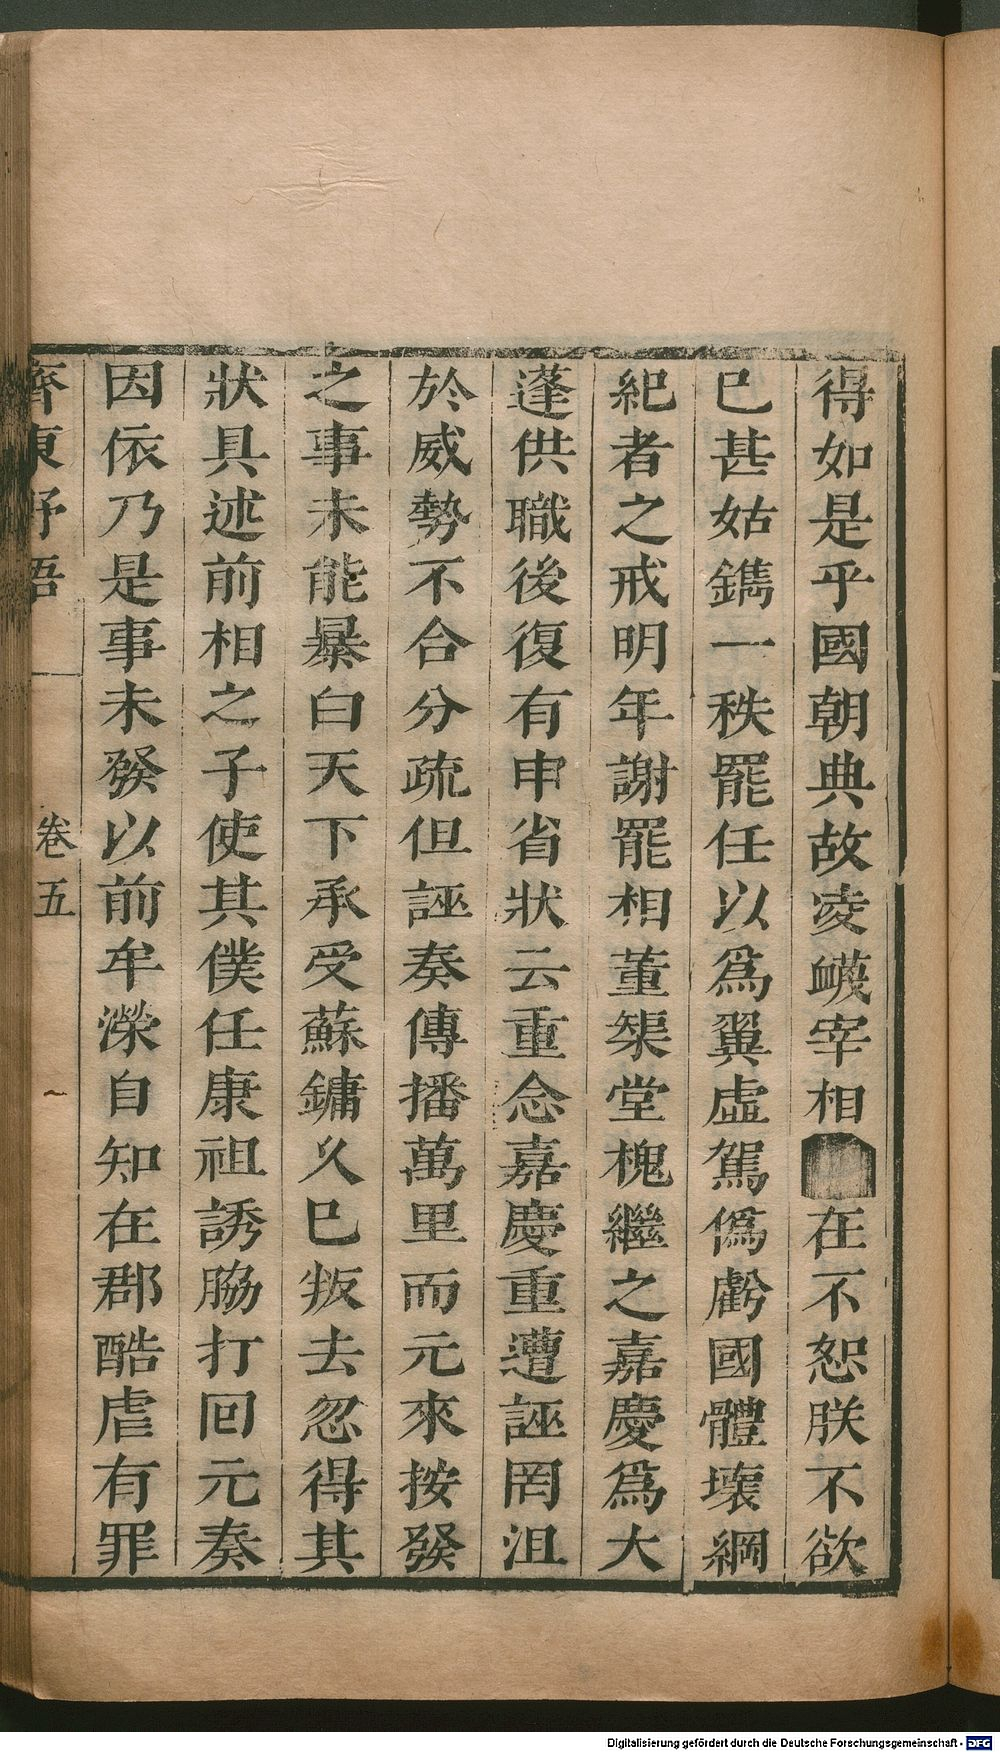 得如是乎國朝典故凌衊宰相在不恕朕不欲
已甚姑鐫一秩罷任以爲翼虛駕僞虧國體壞綱
紀者之戒明年謝罷相董槼堂槐繼之嘉慶爲大
蓬供職後復有申省狀云重念嘉慶重遭誣罔沮
於威勢不合分疏但誣奏傳播萬里而元來按發
之事未能暴白天下承受蘇鏞久巳叛去忽得其
狀具述前相之子使其僕任康祖誘脇打回元奏
因依乃是事未發以前牟濚自知在郡酷虐有罪
齊東野語 卷五
Digitalisierung gefördert durch die Deutsche Forschungsgemeinschaft - DFG